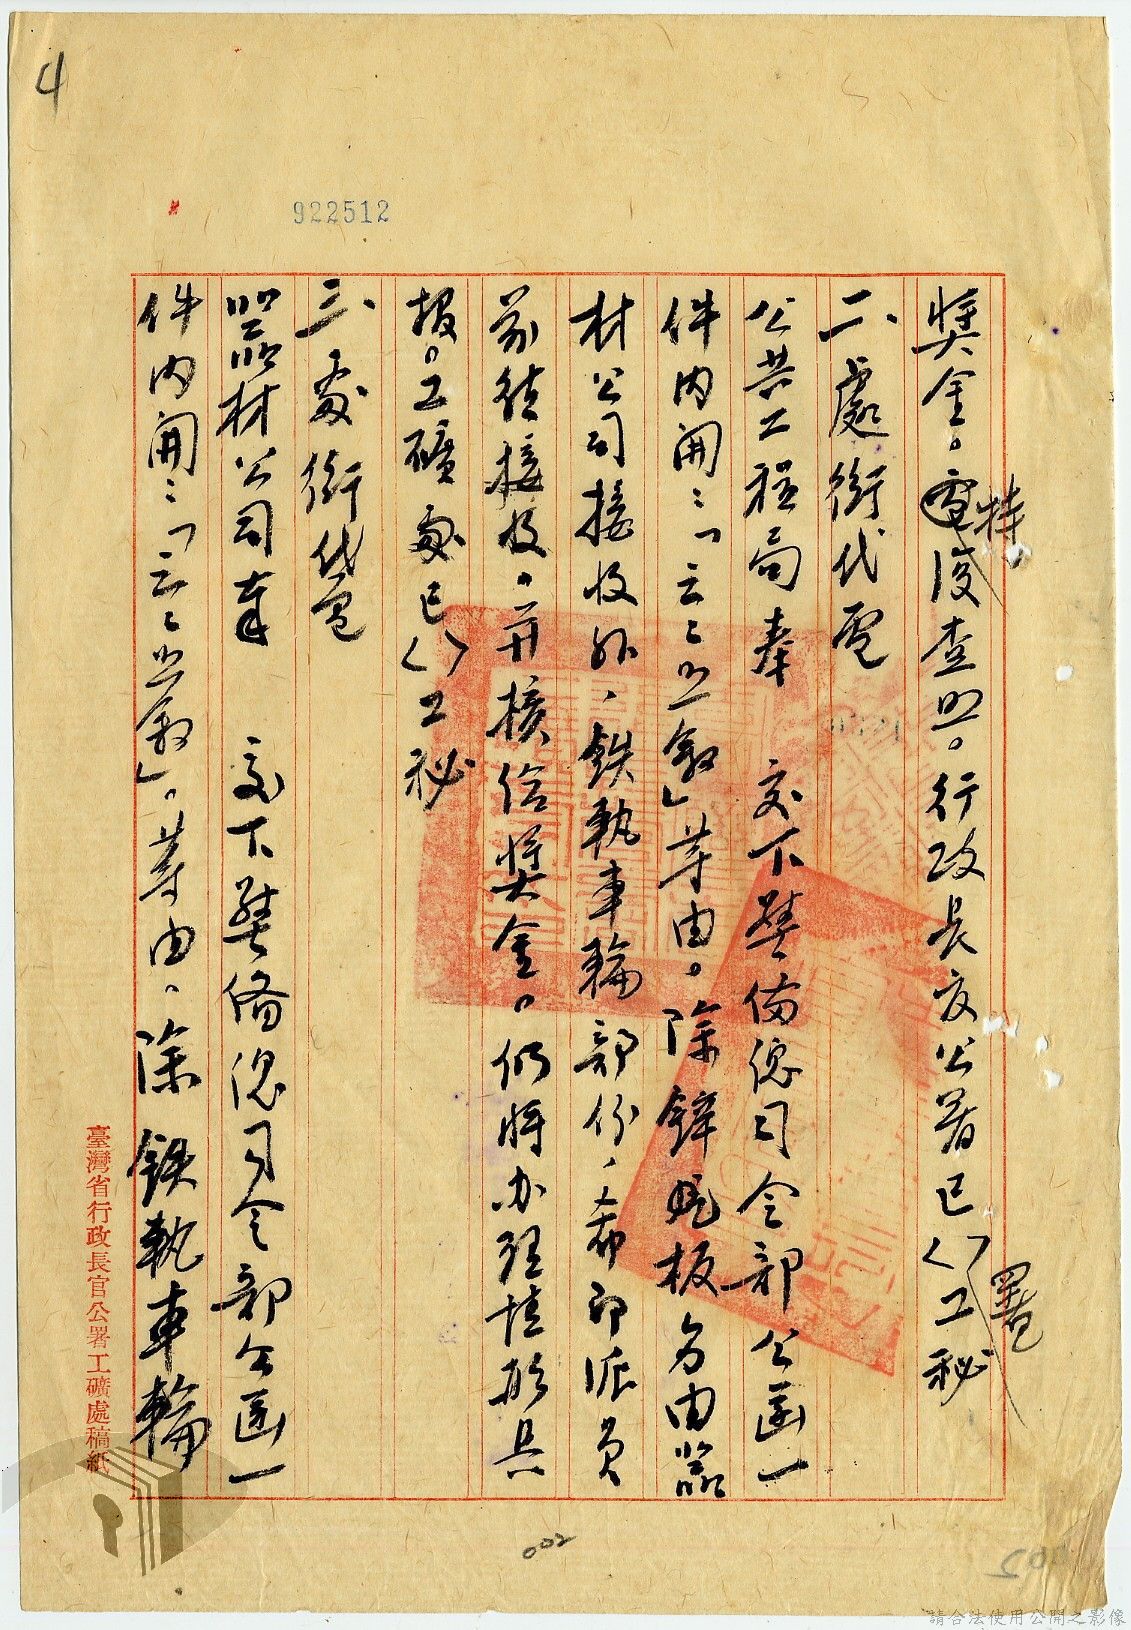 4
922512
獎金。特電復查照。行政長官公署已〈〉署工秘
二、處銜代電
公共工程局奉　交下警備總司令部公函一
件內開：「云云照敘」等由。除鋅晚板另由器
材公司接收外，鉄軌車輪部份，希即派員
前往接收，并核給獎金。仍將办理情形具
報。工礦處已〈〉工秘
三、處銜代電
器材公司奉　交下警备總司令部公函一
件內開：「云云照敘」。等由。除鉄軌車輪
臺灣省行政長官公署工礦處稿紙
002
005
請合法使用公開之影像